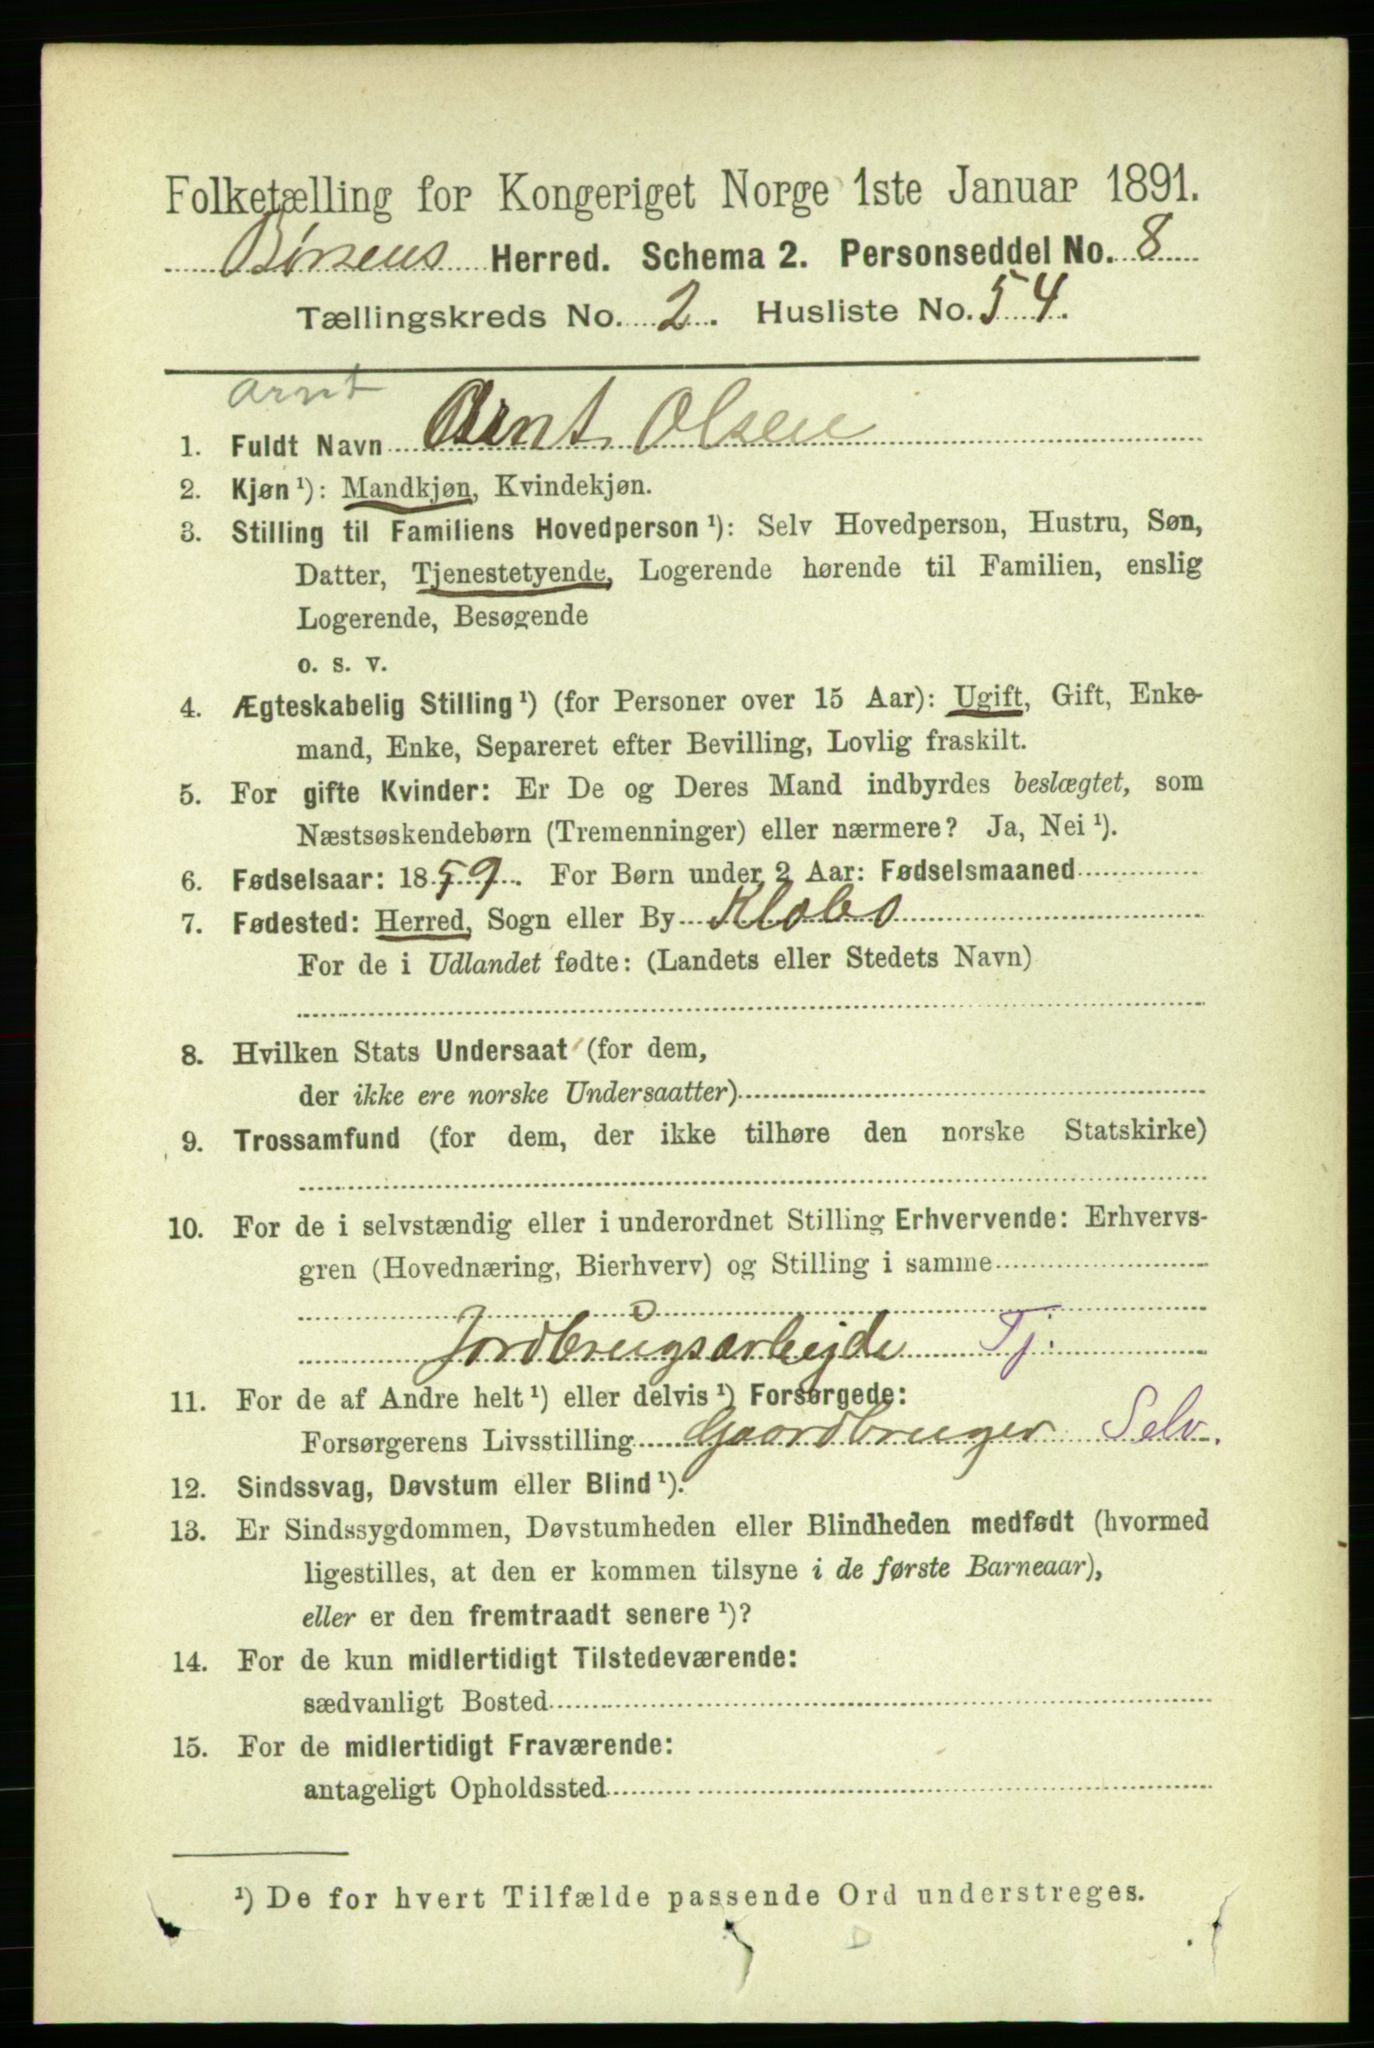 Folketælling for Kongeriget Norge 1ste Januar 1891.
Børsens Herred. Schema 2. Personseddel No. 8
Tællingskreds No. 2. Husliste No. 54.
Arnt
1. Fuldt Navn Arnt Olsen
2. Kjøn ¹): Mandkjøn, Kvindekjøn.
3. Stilling til Familiens Hovedperson ¹): Selv Hovedperson, Hustru, Søn,
Datter, Tjenestetyende, Logerende hørende til Familien, enslig
Logerende, Besøgende
o. s. v.
4. Ægteskabelig Stilling ¹) (for Personer over 15 Aar): Ugift, Gift, Enke-
mand, Enke, Separeret efter Bevilling, Lovlig fraskilt.
5. For gifte Kvinder: Er De og Deres Mand indbyrdes beslægtet, som
Næstsøskendebørn (Tremenninger) eller nærmere? Ja, Nei ¹).
6. Fødselsaar: 1859. For Børn under 2 Aar: Fødselsmaaned
7. Fødested: Herred, Sogn eller By Klæbo
For de i Udlandet fødte: (Landets eller Stedets Navn)
8. Hvilken Stats Undersaat (for dem,
der ikke ere norske Undersaatter)
9. Trossamfund (for dem, der ikke tilhøre den norske Statskirke)
10. For de i selvstændig eller i underordnet Stilling Erhvervende: Erhvervs-
gren (Hovednæring, Bierhverv) og Stilling i samme
Jordbrugsarbejde Tj.
11. For de af Andre helt ¹) eller delvis ¹) Forsørgede:
Forsørgerens Livsstilling Gaardbruger Selv.
12. Sindssvag, Døvstum eller Blind ¹).
13. Er Sindssygdommen, Døvstumheden eller Blindheden medfødt (hvormed
ligestilles, at den er kommen tilsyne i de første Barneaar),
eller er den fremtraadt senere ¹)?
14. For de kun midlertidigt Tilstedeværende:
sædvanligt Bosted
15. For de midlertidigt Fraværende:
antageligt Opholdssted
¹) De for hvert Tilfælde passende Ord understreges.